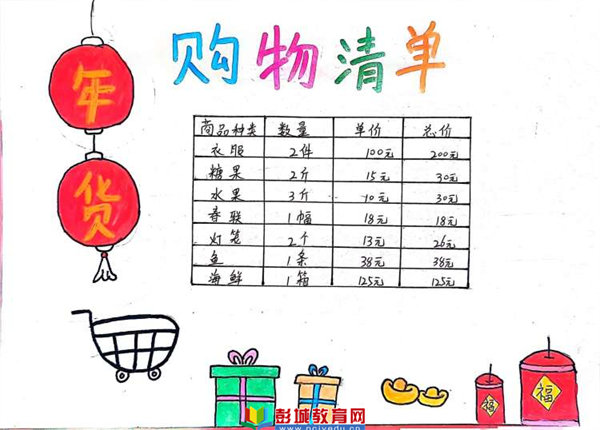 购物清单
年
货
商品种类 数量 单价 总价
衣服 2件 100元 200元
糖果 2斤 15元 30元
水果 3斤 10元 30元
春联 1幅 18元 18元
灯笼 2个 13元 26元
鱼 1条 38元 38元
海鲜 1箱 125元 125元
福
福
彭城教育网